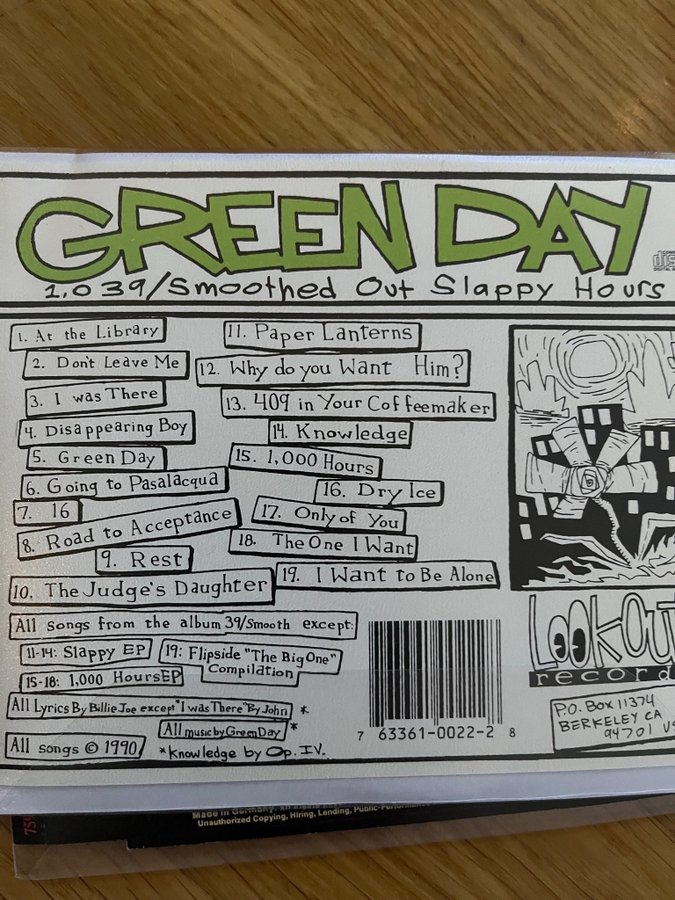 GREEN DAY
1,039/Smoothed Out Slappy Hours
1. At the Library
2. Don't Leave Me
3. I was There
4. Disappearing Boy
5. Green Day
6. Going to Pasalacqua
7. 16
8. Road to Acceptance
9. Rest
10. The Judge's Daughter
11. Paper Lanterns
12. Why do you Want Him?
13. 409 in Your Coffeemaker
14. Knowledge
15. 1,000 Hours
16. Dry Ice
17. Only of You
18. The One I Want
19. I Want to Be Alone
All songs from the album 39/Smooth except:
11-14: Slappy EP
15-18: 1,000 Hours EP
19: Flipside "The Big One"
Compilation
All Lyrics By Billie Joe except "I was There" By John *
All music by Green Day *
All songs © 1990
*Knowledge by Op. IV.
7 63361-0022-2 8
LOOKOUT
records
P.O. Box 11374
BERKELEY CA
94701
Made in Germany.
Unauthorized Copying, Hiring, Lending, Public-Performance